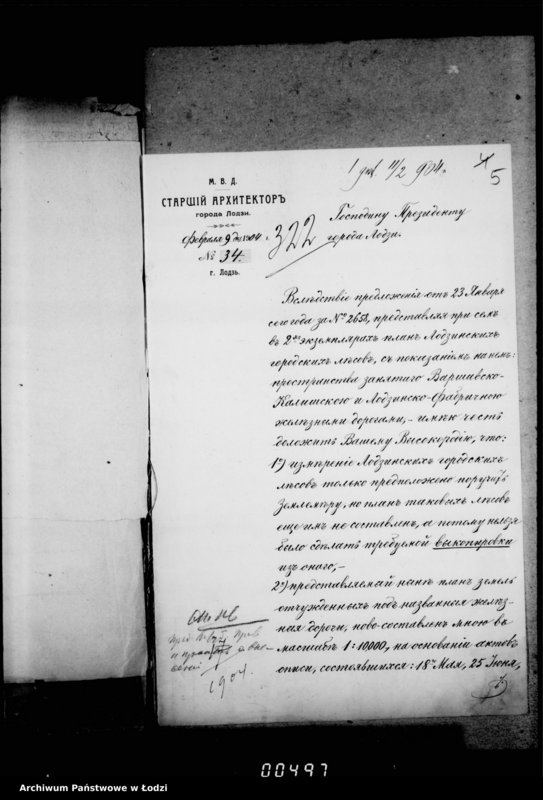 1 11/2 904 г.
4
5
М. В. Д.
СТАРШІЙ АРХИТЕКТОРЪ
города Лодзи.
Февраля 9 дня 1904 г.
№ 34.
г. Лодзь.
322
Господину Президенту
города Лодзи.
Вслѣдствіе предложенія отъ 23 Января
сего года за № 2658, представляя при семъ
въ 2хъ экземплярахъ планъ Лодзинскихъ
городскихъ лѣсовъ, съ показаніемъ на немъ:
пространства занятаго Варшавско-
Калишскою и Лодзинско-Фабричною
желѣзными дорогами, – имѣю честь
доложить Вашему Высокородію, что:
1º) измѣреніе Лодзинскихъ городскихъ
лѣсовъ только предположено поручить
Землемѣру, но планъ таковыхъ лѣсовъ
еще имъ не составленъ, а потому нельзя
было сдѣлать требуемой выкопировки
изъ онаго, –
2º) представляемый нынѣ планъ земель
отчужденныхъ подъ названныя желѣз-
ныя дороги, ново-составленъ мною въ
масштабѣ 1:10000, на основаніи актовъ
описи, состоявшихся: 18го Мая, 25 Іюня,
1904.
00497
Archiwum Państwowe w Łodzi